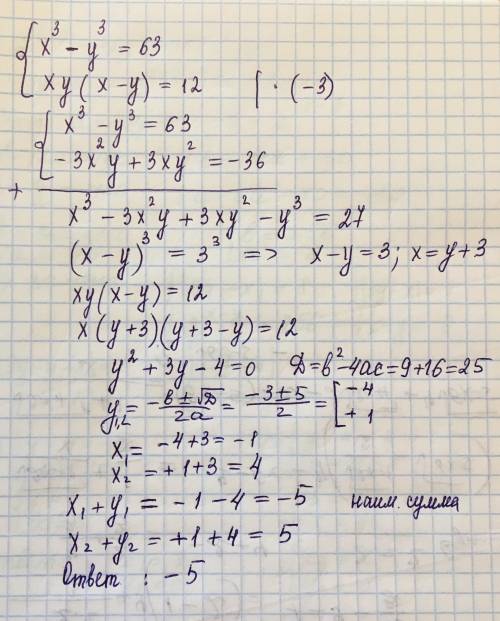 x³ - y³ = 63
xy(x-y) = 12 | · (-3)
x³ - y³ = 63
-3x²y + 3xy² = -36
+
x³ - 3x²y + 3xy² - y³ = 27
(x-y)³ = 3³ => x-y=3; x=y+3
xy(x-y)=12
x(y+3)(y+3-y)=12
y² + 3y - 4 = 0 D=b²-4ac=9+16=25
y₁,₂ = (-b ± √D)/2a = (-3 ± 5)/2 = [ -4 +1
x₁ = -4+3 = -1
x₂ = +1+3 = 4
x₁ + y₁ = -1 - 4 = -5 наим. сумма
x₂ + y₂ = +1 + 4 = 5
Ответ : -5